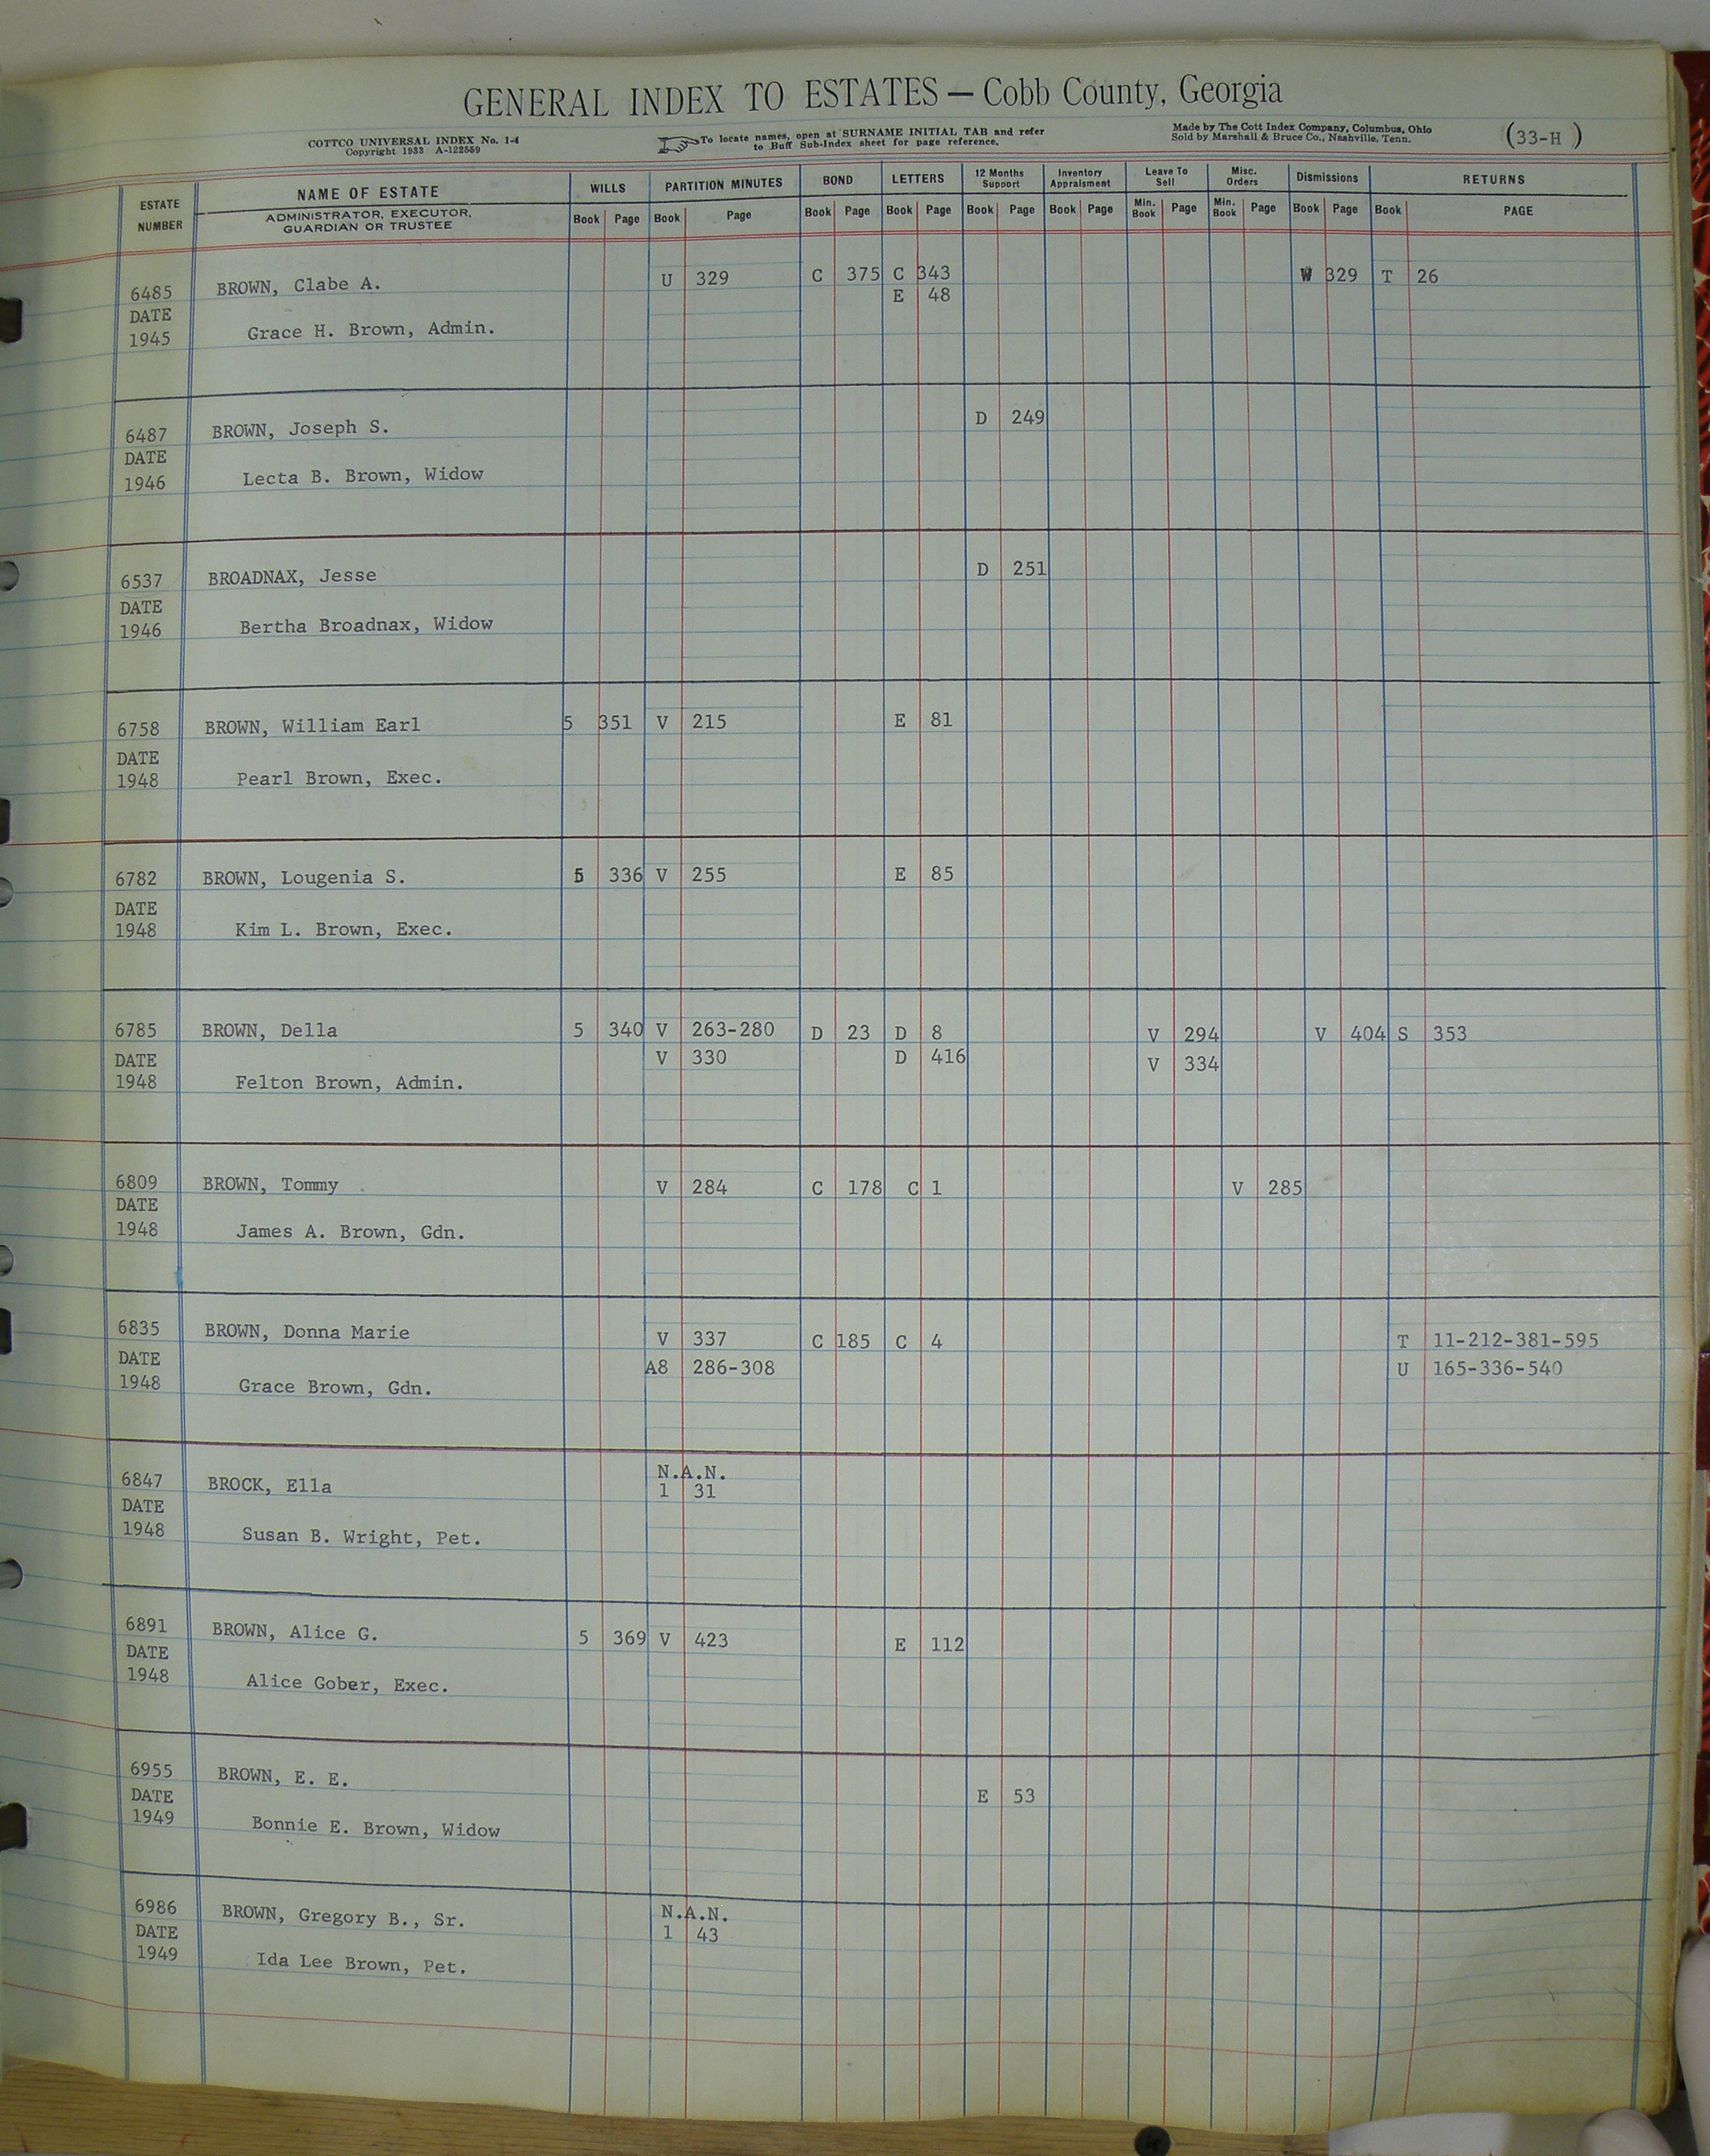 GENERAL INDEX TO ESTATES — Cobb County, Georgia
COTTCO UNIVERSAL INDEX No. 1-4
Copyright 1933 A-122559
To locate names, open at SURNAME INITIAL TAB and refer
to Buff Sub-Index sheet for page reference.
Made by The Cott Index Company, Columbus, Ohio
Sold by Marshall & Bruce Co., Nashville, Tenn.
(33-H)
ESTATE NUMBER NAME OF ESTATE WILLS PARTITION MINUTES BOND LETTERS 12 Months Support Inventory Appraisment Leave To Sell Misc. Orders Dismissions RETURNS
ADMINISTRATOR, EXECUTOR, GUARDIAN OR TRUSTEE Book Page Book Page Book Page Book Page Book Page Book Page Min. Book Page Min. Book Page Book Page Book PAGE
6485 BROWN, Clabe A. U 329 C 375 C 343 W 329 T 26
DATE E 48
1945 Grace H. Brown, Admin.
6487 BROWN, Joseph S. D 249
DATE
1946 Lecta B. Brown, Widow
6537 BROADNAX, Jesse D 251
DATE
1946 Bertha Broadnax, Widow
6758 BROWN, William Earl 5 351 V 215 E 81
DATE
1948 Pearl Brown, Exec.
6782 BROWN, Lougenia S. 5 336 V 255 E 85
DATE
1948 Kim L. Brown, Exec.
6785 BROWN, Della 5 340 V 263-280 D 23 D 8 V 294 V 404 S 353
DATE V 330 D 416 V 334
1948 Felton Brown, Admin.
6809 BROWN, Tommy V 284 C 178 C 1 V 285
DATE
1948 James A. Brown, Gdn.
6835 BROWN, Donna Marie V 337 C 185 C 4 T 11-212-381-595
DATE A8 286-308 U 165-336-540
1948 Grace Brown, Gdn.
6847 BROCK, Ella N.A.N.
DATE 1 31
1948 Susan B. Wright, Pet.
6891 BROWN, Alice G. 5 369 V 423 E 112
DATE
1948 Alice Gober, Exec.
6955 BROWN, E. E. E 53
DATE
1949 Bonnie E. Brown, Widow
6986 BROWN, Gregory B., Sr. N.A.N.
DATE 1 43
1949 Ida Lee Brown, Pet.